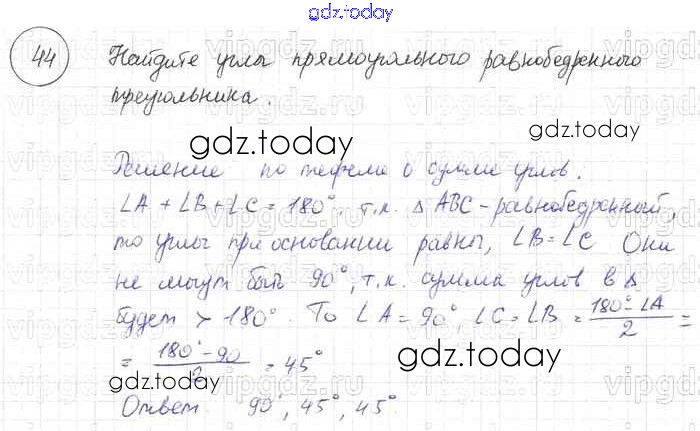 gdz.today
44 Найдите углы прямоугольного равнобедренного
треугольника.
gdz.today
Решение по теореме о сумме углов.
∠A + ∠B + ∠C = 180°, т.к. △ ABC - равнобедренный,
то углы при основании равны, ∠B = ∠C Они
не могут быть 90°, т.к. сумма углов в △
будет > 180° То ∠A = 90° ∠C = ∠B = (180° - ∠A)/2 =
= (180° - 90)/2 = 45°
gdz.today
gdz.today
Ответ 90°, 45°, 45°.